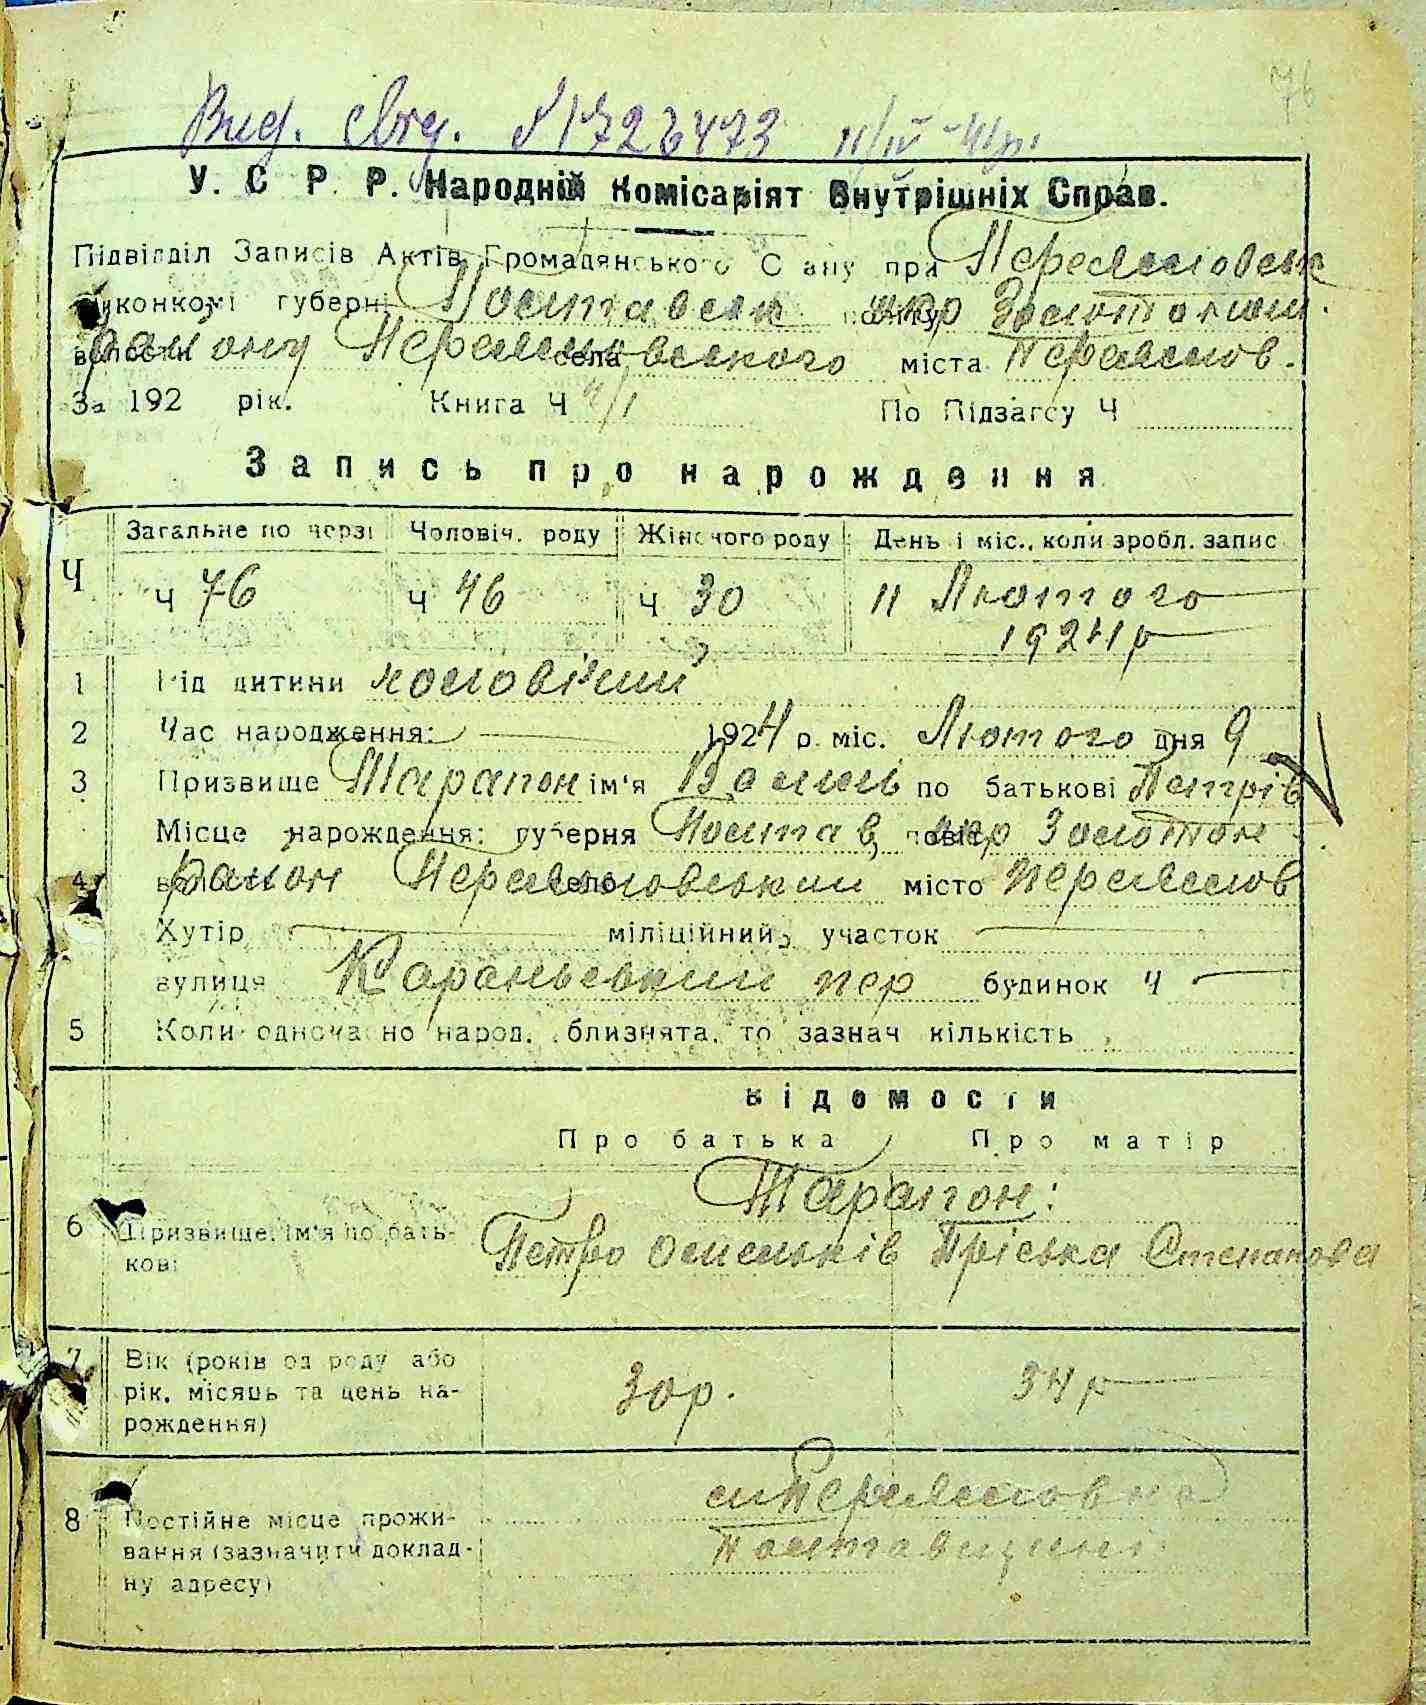 76
Вид. свид. №1726473 11/IV-41р.
У. С Р. Р. Народній Комісаріят Внутрішніх Справ.
Підвідділ Записів Актів Громадянського С ану при Переяславськ
конкомі губерні Полтавськ окр Золотоніш.
району Переяславського села міста Переяслов.
За 192 рік. Книга Ч По Підзагсу Ч
Запись про нарождення
Загальне по черзі Чоловіч. роду Жіночого роду День і міс., коли зробл. запис
Ч Ч 76 Ч 46 Ч 30 11 Лютого
1924 р
1 Рід дитини чоловічий
2 Час народження: 1924 р. міс. Лютого дня 9
3 Призвище Тарапон ім'я Василь по батькові Петрів
Місце нарождення: губерня Полтав, окр Золотон
4 район Переясловський село місто Переяслов
Хутір міліційний участок
вулиця Караньський пер будинок Ч
5 Коли одночасно народ. близнята, то зазнач кількість
Відомости
Про батька Про матір
Тарапон:
6 Призвище, ім'я по бать-
кові
Петро Омельків Пріська Степанова
7 Вік (років од роду або
рік, місяць та день на-
рождення)
30р. 34 р
8 Постійне місце прожи-
вання (зазначити доклад-
ну адресу)
Полтавщині